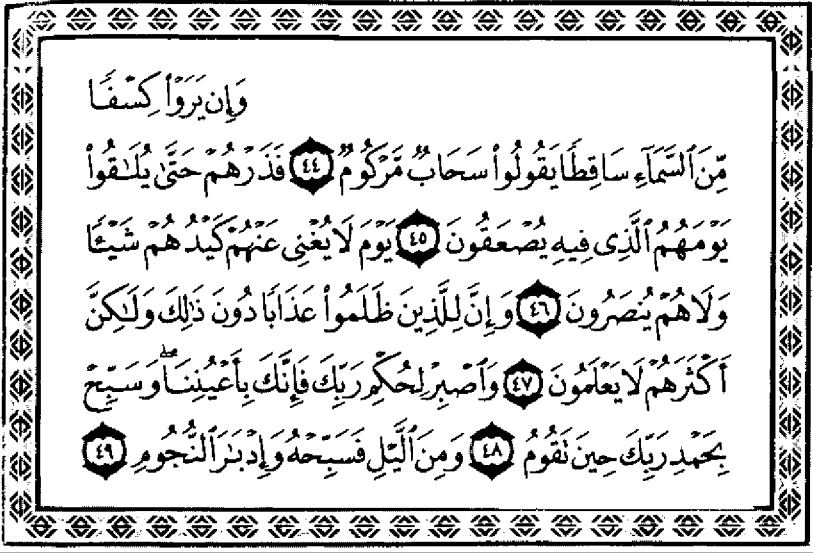 وَإِن يَرَوْا۟ كِسْفًا
مِّنَ ٱلسَّمَآءِ سَاقِطًا يَقُولُوا۟ سَحَابٌ مَّرْكُومٌ ٤٤ فَذَرْهُمْ حَتَّىٰ يُلَـٰقُوا۟
يَوْمَهُمُ ٱلَّذِى فِيهِ يُصْعَقُونَ ٤٥ يَوْمَ لَا يُغْنِى عَنْهُمْ كَيْدُهُمْ شَيْـًٔا
وَلَا هُمْ يُنصَرُونَ ٤٦ وَإِنَّ لِلَّذِينَ ظَلَمُوا۟ عَذَابًا دُونَ ذَٰلِكَ وَلَـٰكِنَّ
أَكْثَرَهُمْ لَا يَعْلَمُونَ ٤٧ وَٱصْبِرْ لِحُكْمِ رَبِّكَ فَإِنَّكَ بِأَعْيُنِنَا ۖ وَسَبِّحْ
بِحَمْدِ رَبِّكَ حِينَ تَقُومُ ٤٨ وَمِنَ ٱلَّيْلِ فَسَبِّحْهُ وَإِدْبَـٰرَ ٱلنُّجُومِ ٤٩